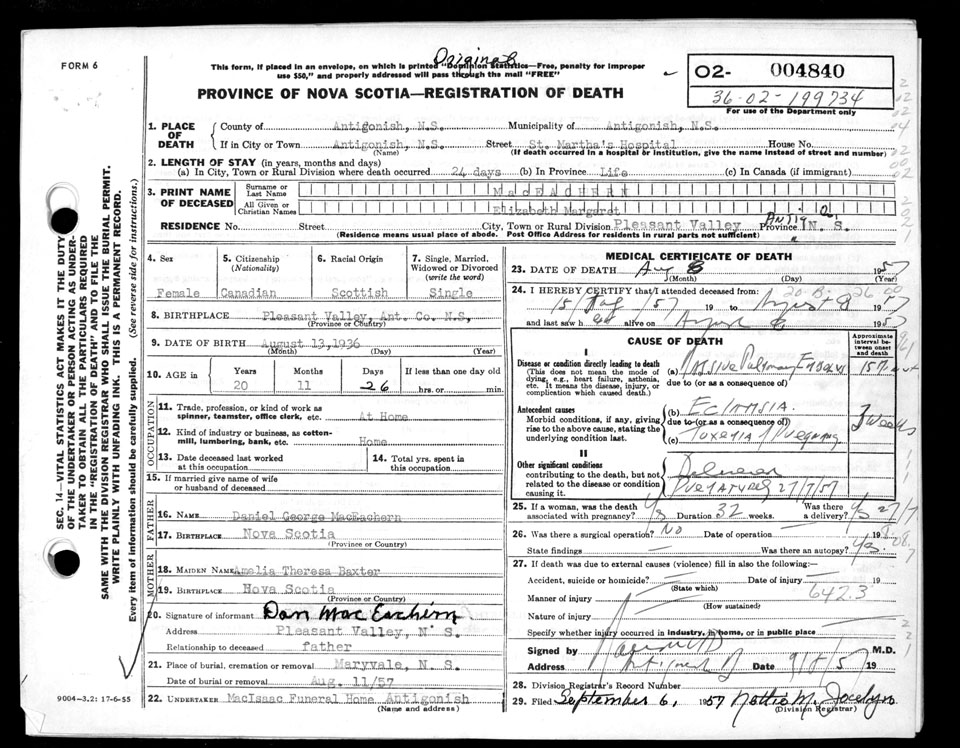 FORM 6
Original
This form, if placed in an envelope, on which is printed "Dominion Statistics—Free, penalty for improper
use $50," and properly addressed will pass through the mail "FREE"
PROVINCE OF NOVA SCOTIA—REGISTRATION OF DEATH
02- 004840
36-02-199734
For use of the Department only
1. PLACE OF DEATH
County of Antigonish, N.S. Municipality of Antigonish, N.S.
If in City or Town Antigonish, N.S. Street St. Martha's Hospital House No.
(Name) (If death occurred in a hospital or institution, give the name instead of street and number)
2. LENGTH OF STAY (in years, months and days)
(a) In City, Town or Rural Division where death occurred 24 days (b) In Province Life (c) In Canada (if immigrant)
3. PRINT NAME OF DECEASED
Surname or Last Name MacEACHERN
All Given or Christian Names Elizabeth Margaret
RESIDENCE No. Street City, Town or Rural Division Pleasant Valley Antig. Province N. S.
(Residence means usual place of abode. Post Office Address for residents in rural parts not sufficient)
4. Sex
Female
5. Citizenship (Nationality)
Canadian
6. Racial Origin
Scottish
7. Single, Married, Widowed or Divorced (write the word)
Single
8. BIRTHPLACE Pleasant Valley, Ant. Co. N.S,
(Province or Country)
9. DATE OF BIRTH August 13,1936
(Month) (Day) (Year)
10. AGE in Years Months Days If less than one day old
20 11 26 hrs. or min.
OCCUPATION
11. Trade, profession, or kind of work as spinner, teamster, office clerk, etc. At Home
12. Kind of industry or business, as cotton-mill, lumbering, bank, etc. Home
13. Date deceased last worked at this occupation
14. Total yrs. spent in this occupation
15. If married give name of wife or husband of deceased
FATHER
16. NAME Daniel George MacEachern
17. BIRTHPLACE Nova Scotia
(Province or Country)
MOTHER
18. MAIDEN NAME Amelia Theresa Baxter
19. BIRTHPLACE Nova Scotia
(Province or Country)
20. Signature of informant Dan MacEachern
Address Pleasant Valley, N. S.
Relationship to deceased father
21. Place of burial, cremation or removal Maryvale, N. S.
Date of burial or removal Aug. 11/57
22. UNDERTAKER MacIsaac Funeral Home Antigonish
(Name and address)
MEDICAL CERTIFICATE OF DEATH
23. DATE OF DEATH Aug 8 1957
(Month) (Day)
24. I HEREBY CERTIFY that I attended deceased from:
15/ /57 19 to August 8 1957
and last saw her alive on August 8 1957
CAUSE OF DEATH
Approximate interval between onset and death
I
Disease or condition directly leading to death
(This does not mean the mode of dying, e.g., heart failure, asthenia, etc. It means the disease, injury, or complication which caused death.)
(a) Massive Pulmonary Embolus 15
due to (or as a consequence of)
Antecedent causes
Morbid conditions, if any, giving rise to the above cause, stating the underlying condition last.
(b) Eclamsia. 3 weeks
due to (or as a consequence of)
(c) Toxemia Pregnancy
II
Other significant conditions
contributing to the death, but not related to the disease or condition causing it.
Delivered
Prematurely 27/7/57
25. If a woman, was the death associated with pregnancy? Yes Duration 32 weeks. Was there a delivery? Yes 27/7
26. Was there a surgical operation? No Date of operation 19
State findings Was there an autopsy? Yes.
27. If death was due to external causes (violence) fill in also the following:
Accident, suicide or homicide? Date of injury 19
(State which)
Manner of injury 642.3
(How sustained)
Nature of injury
Specify whether injury occurred in industry, in home, or in public place
Signed by M.D.
Address Antigonish Date 9/8/57 19
28. Division Registrar's Record Number
29. Filed September 6, 1957 Nottie M. Jocelyn
(Division Registrar)
SEC. 14—VITAL STATISTICS ACT MAKES IT THE DUTY
OF THE UNDERTAKER OR PERSON ACTING AS UNDER-
TAKER TO OBTAIN ALL THE PARTICULARS REQUIRED
IN THE "REGISTRATION OF DEATH" AND TO FILE THE
SAME WITH THE DIVISION REGISTRAR WHO SHALL ISSUE THE BURIAL PERMIT.
WRITE PLAINLY WITH UNFADING INK. THIS IS A PERMANENT RECORD.
Every item of information should be carefully supplied. (See reverse side for instructions.)
9004-3.2: 17-6-55